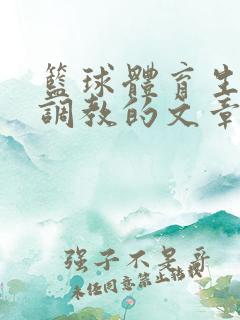 籃球體育生
調教的文章
强子不是哥
未经同意禁止转载